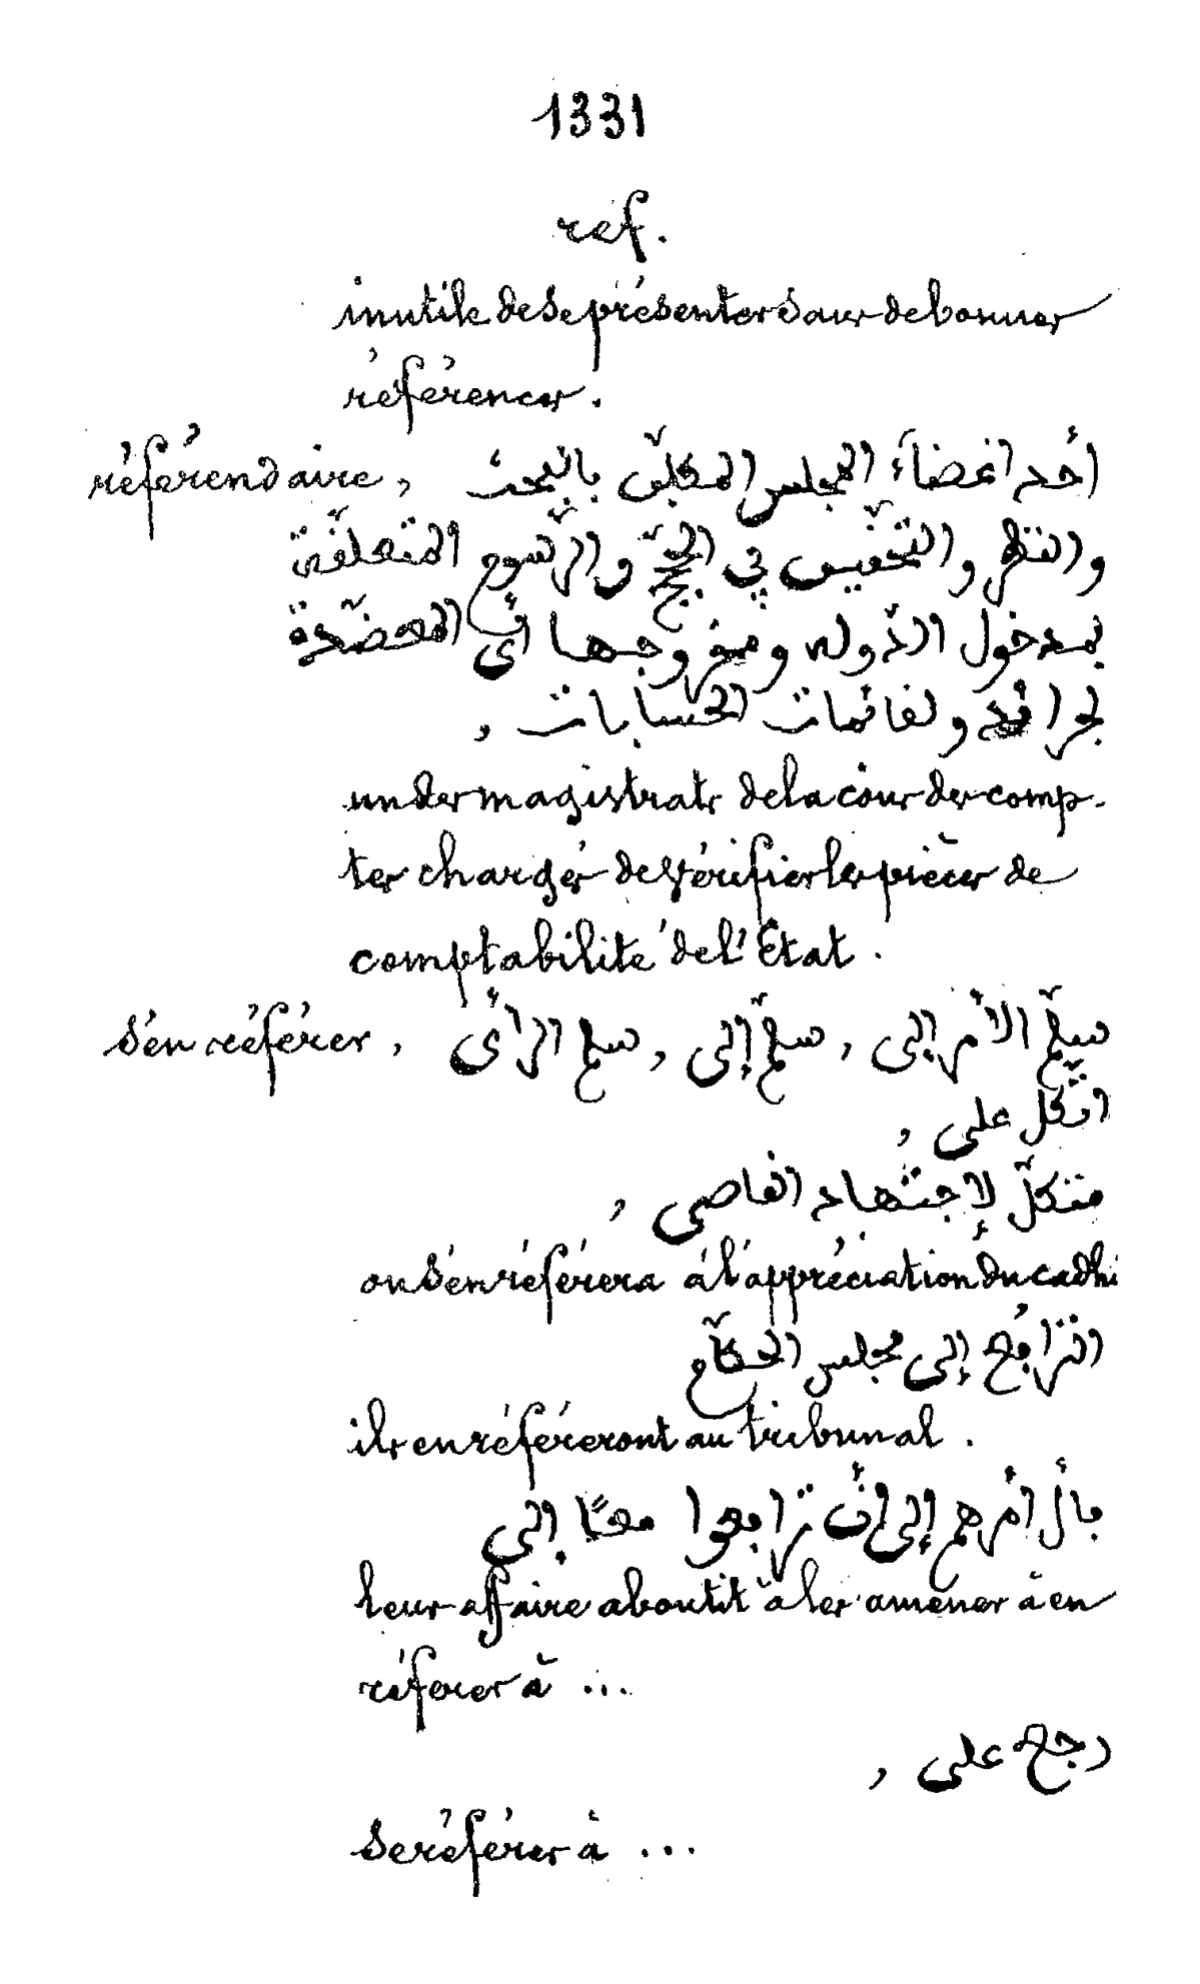 1331
réf.
inutile de se présenter sans de bonnes
références.
référendaire, أحد اعضآء المجلس المكلّف بالبحث
والنظر والتحقيق في الحجج والرّسوم المتعلّقة
بمدخول الدّولة ومخروجها أي المعضّدة
لجرائد ولقائمات الحسابات ,
un des magistrats de la cour des comp-
tes chargés de vérifier les pièces de
comptabilité de l'État.
s'en référer, سلّم الأمر إلى , سلّم إلى , سلم الرأي
اتّكل على ,
متّكل لإجتهاد القاضي ,
on s'en référera à l'appréciation du cadhi
الترافع إلى مجلس الحكّام
ils en référeront au tribunal.
مأل أمرهم إلى أن ترافعوا معًا إلى
leur affaire aboutit à les amener à en
référer à ...
رجع على ,
se référer à ...